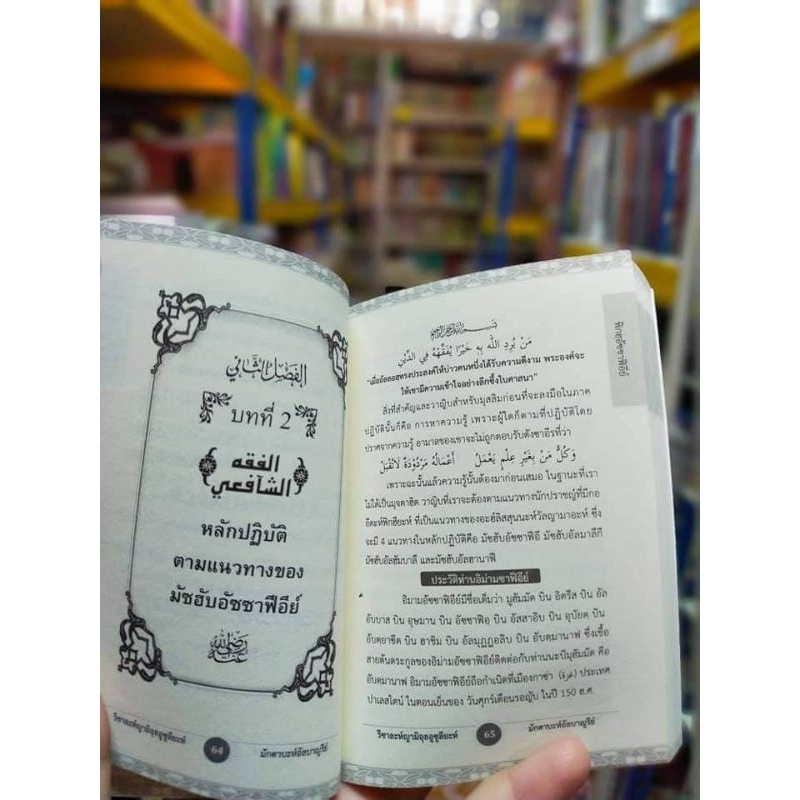 الفصل الثاني
บทที่ 2
الفقه
الشافعي
หลักปฏิบัติ
ตามแนวทางของ
มัซฮับอัซซาฟิอีย์
رضي الله عنه
วิซาละห์ญามิอุลอูซูลียะห์
64
มักตาบะห์อัลบาญูรีย์
ฟิกฮุอัซซาฟิอีย์
بسم الله الرحمن الرحيم
مَنْ يُرِدِ اللهُ بِهِ خَيْرًا يُفَقِّهْهُ فِي الدِّيْنِ
"เมื่ออัลลอฮทรงประสงค์ให้บ่าวคนหนึ่งได้รับความดีงาม พระองค์จะ
ให้เขามีความเข้าใจอย่างลึกซึ้งในศาสนา"
สิ่งที่สำคัญและวาญิบสำหรับมุสลิมก่อนที่จะลงมือในภาค
ปฏิบัตินั้นก็คือ การหาความรู้ เพราะผู้ใดก็ตามที่ปฏิบัติโดย
ปราศจากความรู้ อามาลของเขาจะไม่ถูกตอบรับดังซาอีรที่ว่า
وَكُلُّ مَنْ بِغَيْرِ عِلْمٍ يَعْمَلُ أَعْمَالُهُ مَرْدُوْدَةٌ لَاتُقْبَلُ
เพราะฉะนั้นแล้วความรู้นั้นต้องมาก่อนเสมอ ในฐานะที่เรา
ไม่ได้เป็นมุจตาฮิด วาญิบที่เราจะต้องตามแนวทางนักปราชญ์ที่มีกอ
อีดะห์ฟิกฮียะห์ ที่เป็นแนวทางของอะฮ์ลิสสุนนะห์วัลญามาอะห์ ซึ่ง
จะมี 4 แนวทางในหลักปฏิบัติคือ มัซฮับอัซซาฟิอี มัซฮับอัลมาลีกี
มัซฮับอัลฮัมบาลี และมัซฮับอัลฮานาฟี
ประวัติท่านอิม่ามซาฟิอีย์
อิมามอัซซาฟิอีย์มีชื่อเต็มว่า มูฮัมมัด บิน อิดรีส บิน อัล
อับบาส บิน อุษมาน บิน อัซซาฟิอฺ บิน อัสสาอิบ บิน อุบัยดฺ บิน
อับดฺยาซีด บิน ฮาซิม บิน อัลมุฏฏอลิบ บิน อับดฺมานาฟ ซึ่งเชื้อ
สายต้นตระกูลของอิม่ามอัซซาฟิอีย์ติดต่อกับท่านนะบีมุฮัมมัด คือ
อับดฺมานาฟ อิมามอัซซาฟิอีย์ถือกำเนิดที่เมืองกาซ่า (غزة) ประเทศ
ปาเลสไตน์ ในตอนเย็นของ วันศุกร์เดือนรอญับ ในปี 150 ฮ.ศ.
วิซาละห์ญามิอุลอูซูลียะห์
65
มักตาบะห์อัลบาญูรีย์